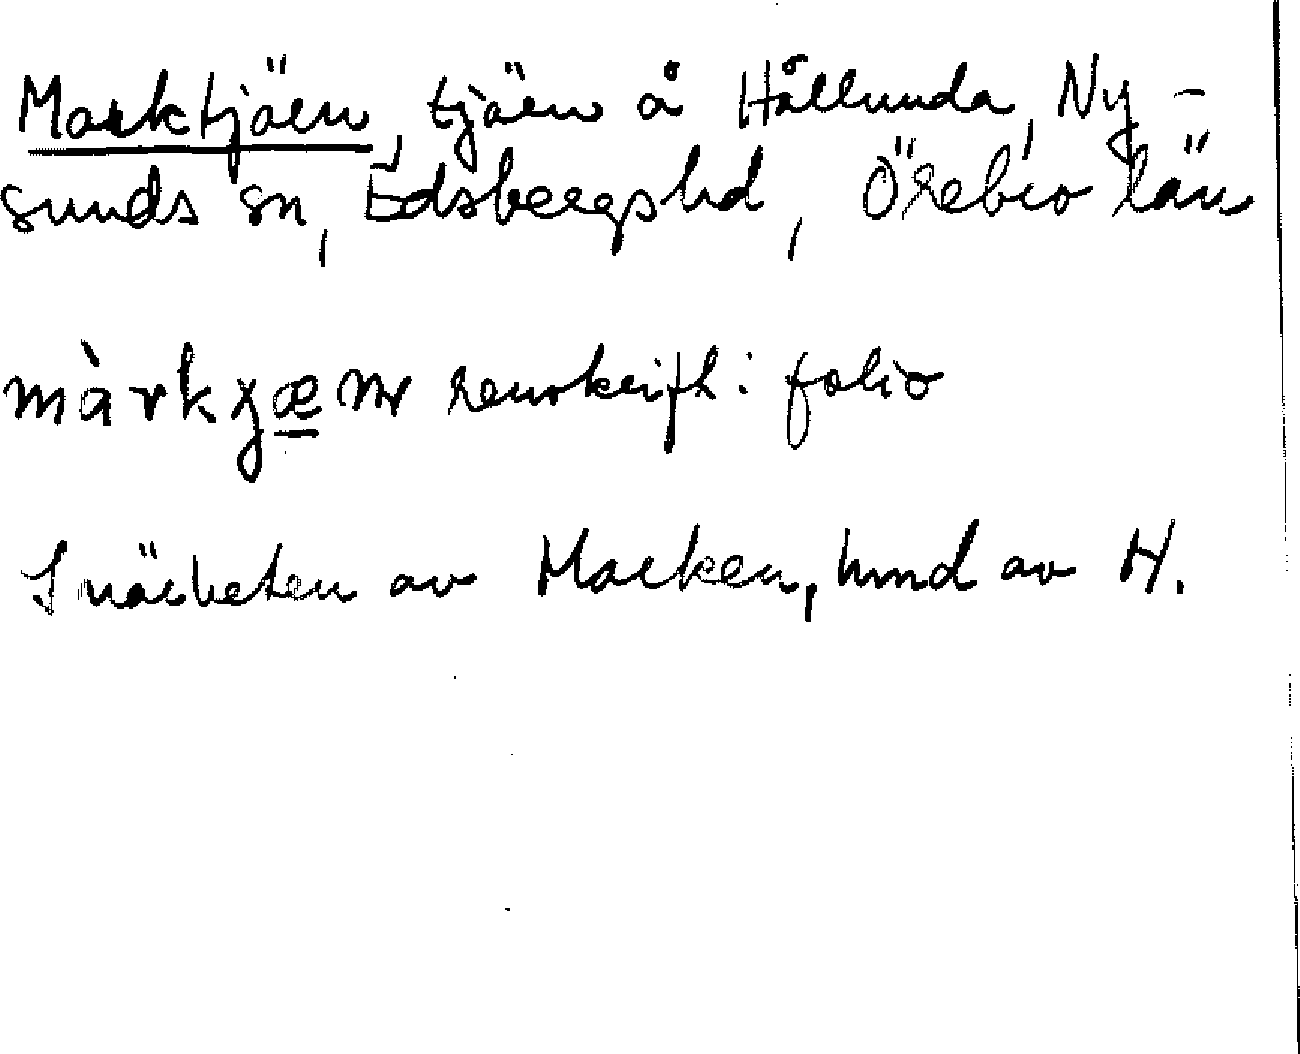 Marktjärn, tjärn å Hållunda, Ny-
sunds sn, Edsbergs hd, Örebro län
màrkɣæ̲ṇ renskrift: folio
I närheten av Marken, hmd av H.